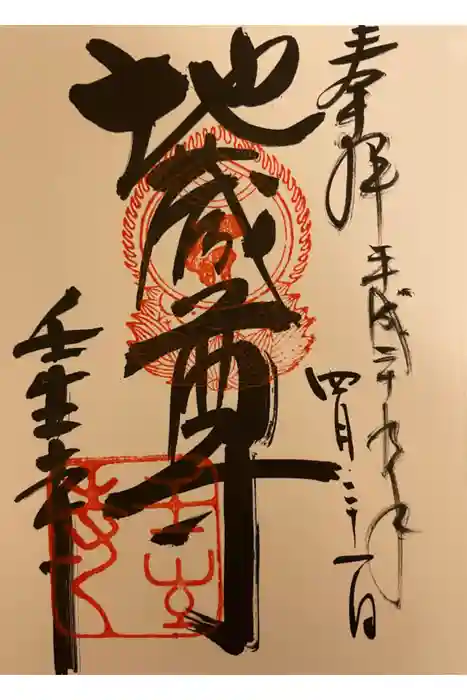 奉拝
平成二十九年
四月二十一日
地蔵尊
壬生寺